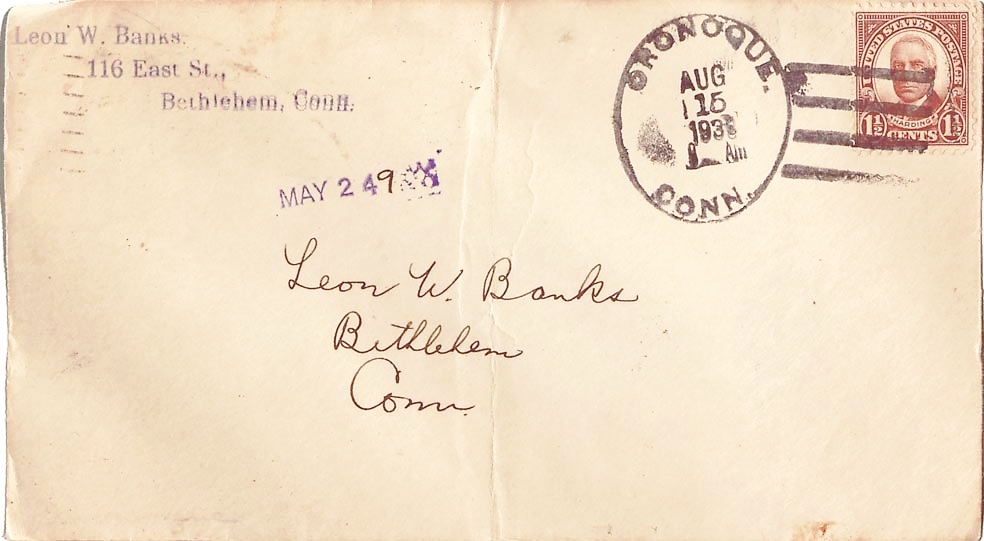 Leon W. Banks.
116 East St.,
Bethlehem, Conn.
ORONOQUE.
AUG
15
AM
CONN.
UNITED STATES POSTAGE
HARDING
1½ CENTS 1½
MAY 24 9
Leon W. Banks
Bethlehem
Conn.